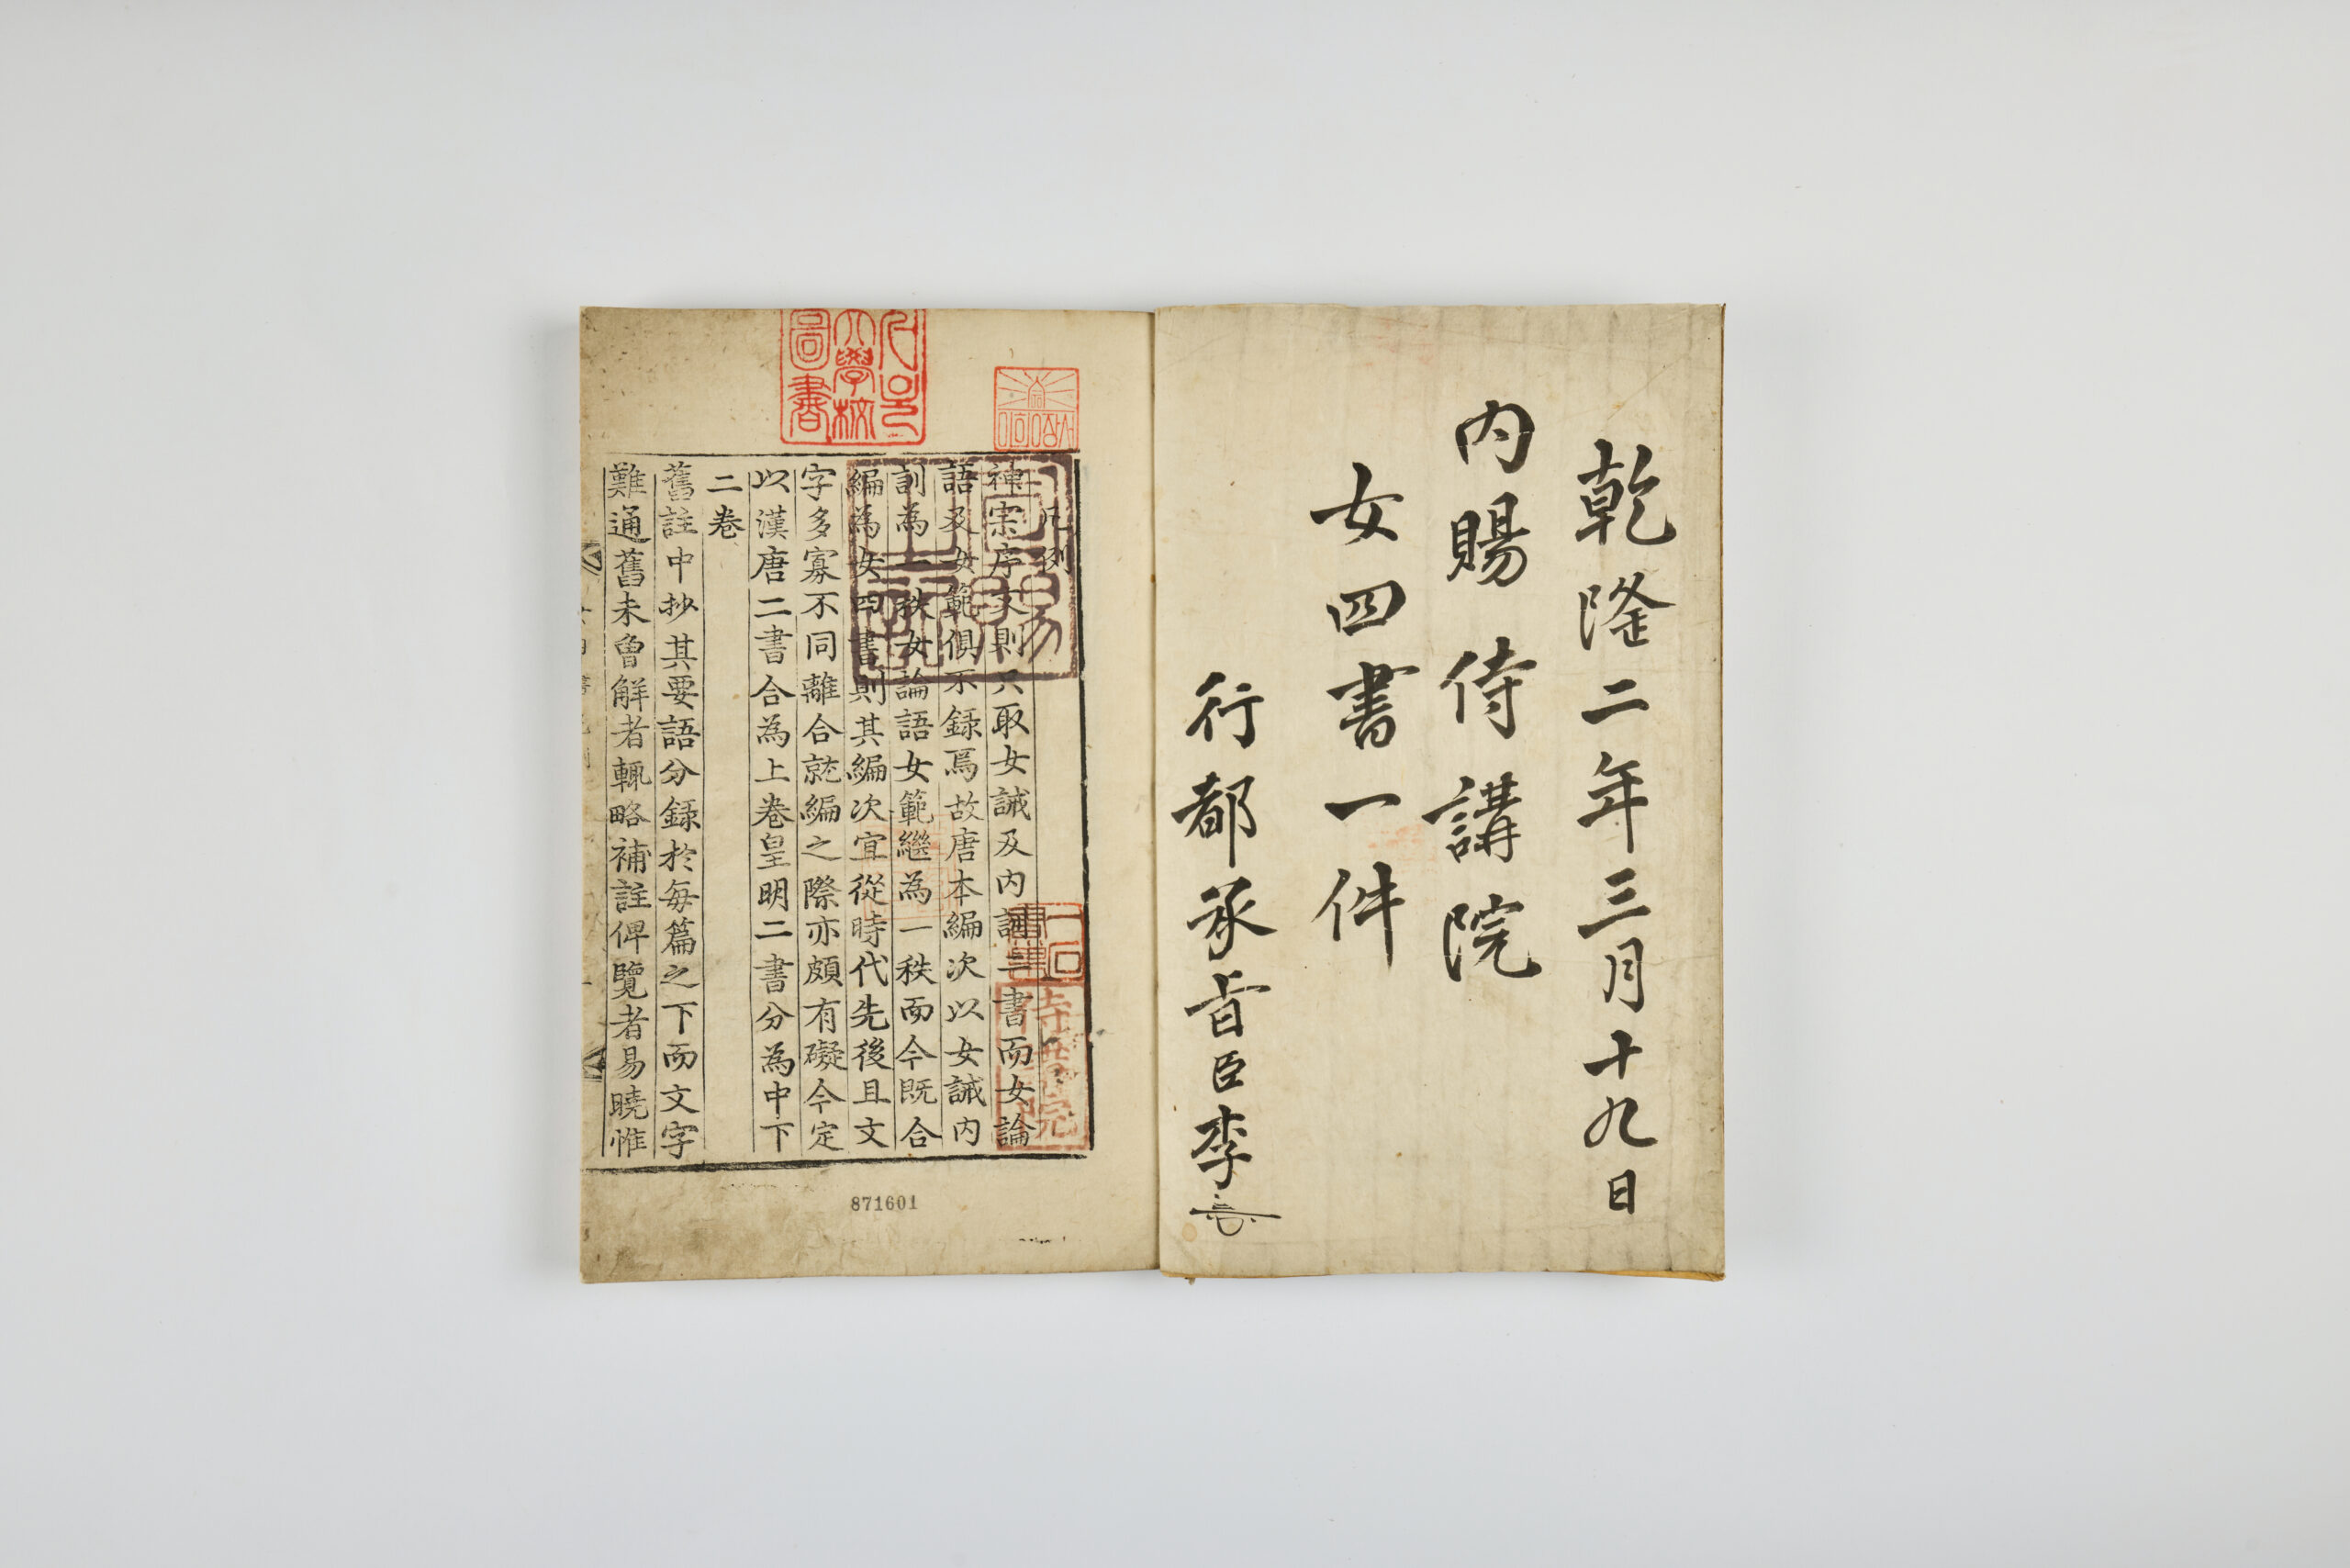 乾隆二年三月十九日
內賜侍講院
女四書一件
行都承旨臣李
凡例
神宗序文則只取女誡及內訓二書而女論
語及女範俱不録焉故唐本編次以女誡內
訓為一秩女論語女範繼為一秩而今既合
編為女四書則其編次宜從時代先後且文
字多寡不同離合就編之際亦頗有礙今定
以漢唐二書合為上卷皇明二書分為中下
二卷
舊註中抄其要語分録於每篇之下而文字
難通舊未曾解者輒略補註俾覽者易曉惟
圖書
大學校
이화장서
侍講院
871601